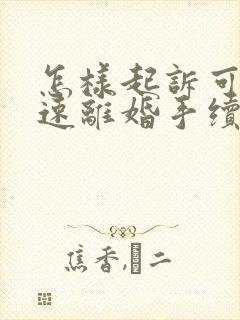 怎樣起訴可
速離婚手續
焦香,二